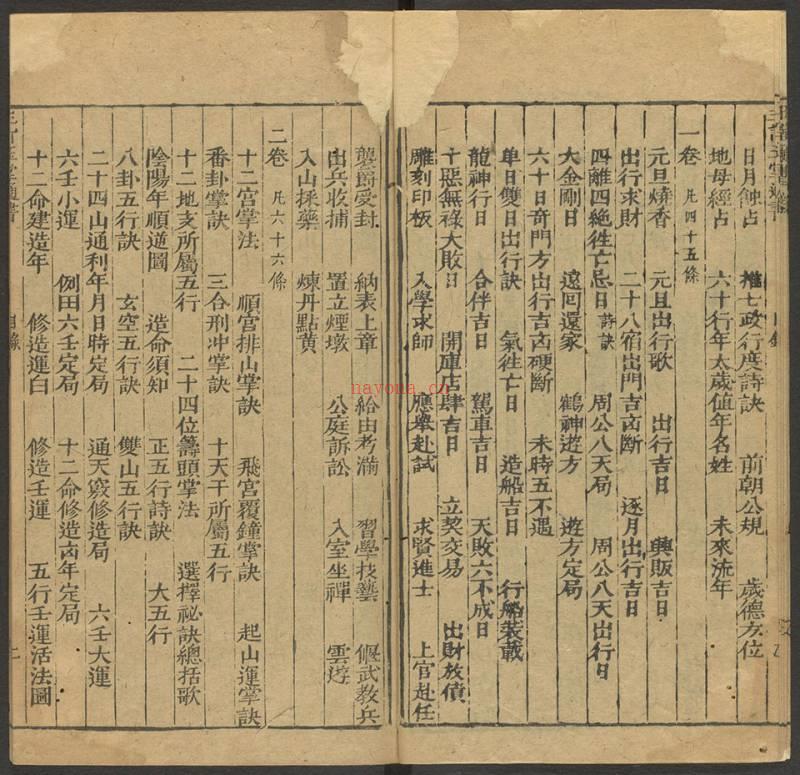 日月蝕占 推七政行度詩訣 前朝公規 歲德方位
地母經占 六十行年太歲值年名姓 未來流年
一卷 凡四十五條
元旦燒香 元旦出行歌 出行吉日 興販吉日
出行求財 二十八宿出門吉凶斷 逐月出行吉日
四離四絶徃亡忌日 詩訣 周公八天局 周公八天出行日
大金剛日 遠回還家 鶴神遊方 遊方定局
六十日奇門方出行吉凶硬斷 未時五不遇
单日雙日出行訣 氣徃亡日 造船吉日 行船裝載
龍神行日 合伴吉日 駕車吉日 天敗六不成日
十惡無祿大敗日 開庫店肆吉日 立契交易 出財放債
雕刻印板 入學求師 應舉赴試 求賢進士 上官赴任
襲爵受封 納表上章 給由考滿 習學技藝 偃武教兵
出兵收捕 置立煙墩 公庭訴訟 入室坐禪 雲遊
入山採藥 煉丹點黄
二卷 凡六十六條
十二宫掌法 順宫排山掌訣 飛宫覆鐘掌訣 起山運掌訣
番卦掌訣 三合刑冲掌訣 十天干所屬五行
十二地支所屬五行 二十四位籌頭掌法 選擇祕訣總括歌
陰陽年順逆圖 造命須知 正五行詩訣 大五行
八卦五行訣 玄空五行訣 雙山五行訣
二十四山通利年月日時定局 通天竅修造局 六壬大運
六壬小運 例田六壬定局 十二命修造凶年定局
十二命建造年 修造運白 修造壬運 五行壬運活法圖
目錄
二
nayona.cn